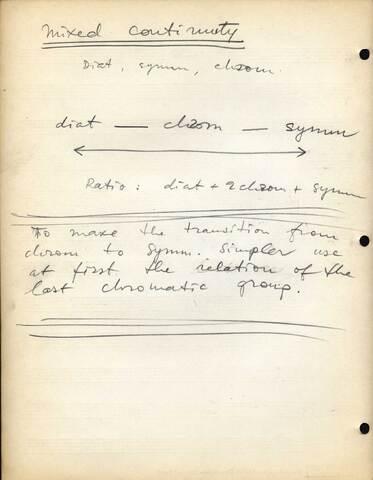 mixed continuity
Diat, symm, chrom.
diat — chrom — symm
Ratio: diat + 2 chrom + symm
To make the transition from
chrom to symm. simpler use
at first the relation of the
last chromatic group.